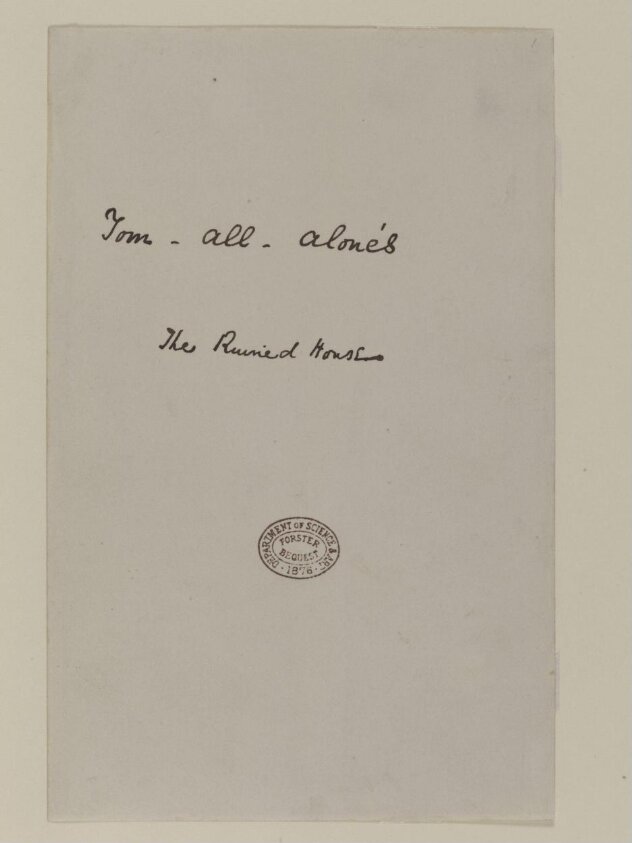 Tom - all - alone's
The Ruined House
DEPARTMENT OF SCIENCE & ART
FORSTER
BEQUEST
· 1876 ·